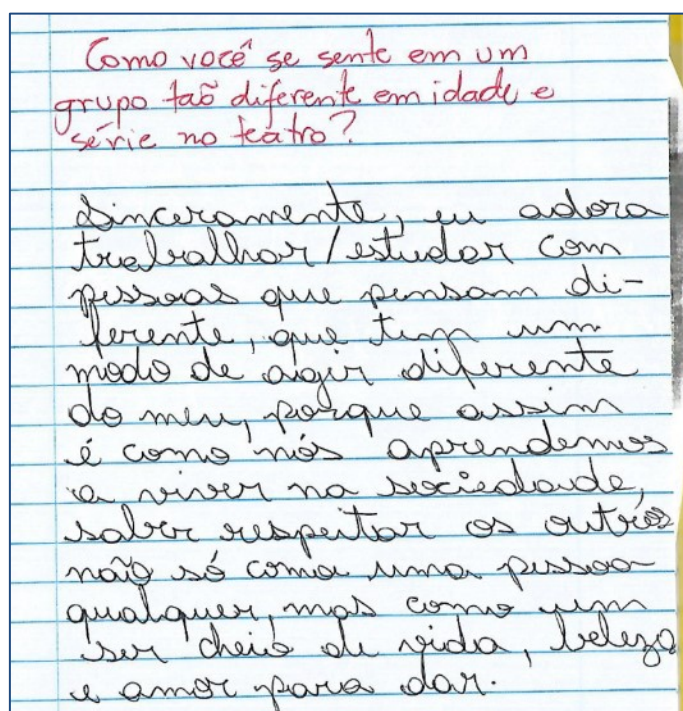 Como você se sente em um
grupo taõ diferente em idade e
série no teatro?
Sinceramente, eu adora
trabalhar/estudar com
pessoas que pensam di-
ferente, que tem um
modo de agir diferente
do meu, porque assim
é como nós aprendemos
a viver na sociedade,
saber respeitar os outros
não só como uma pessoa
qualquer, mas como um
ser cheio de vida, beleza
e amor para dar.